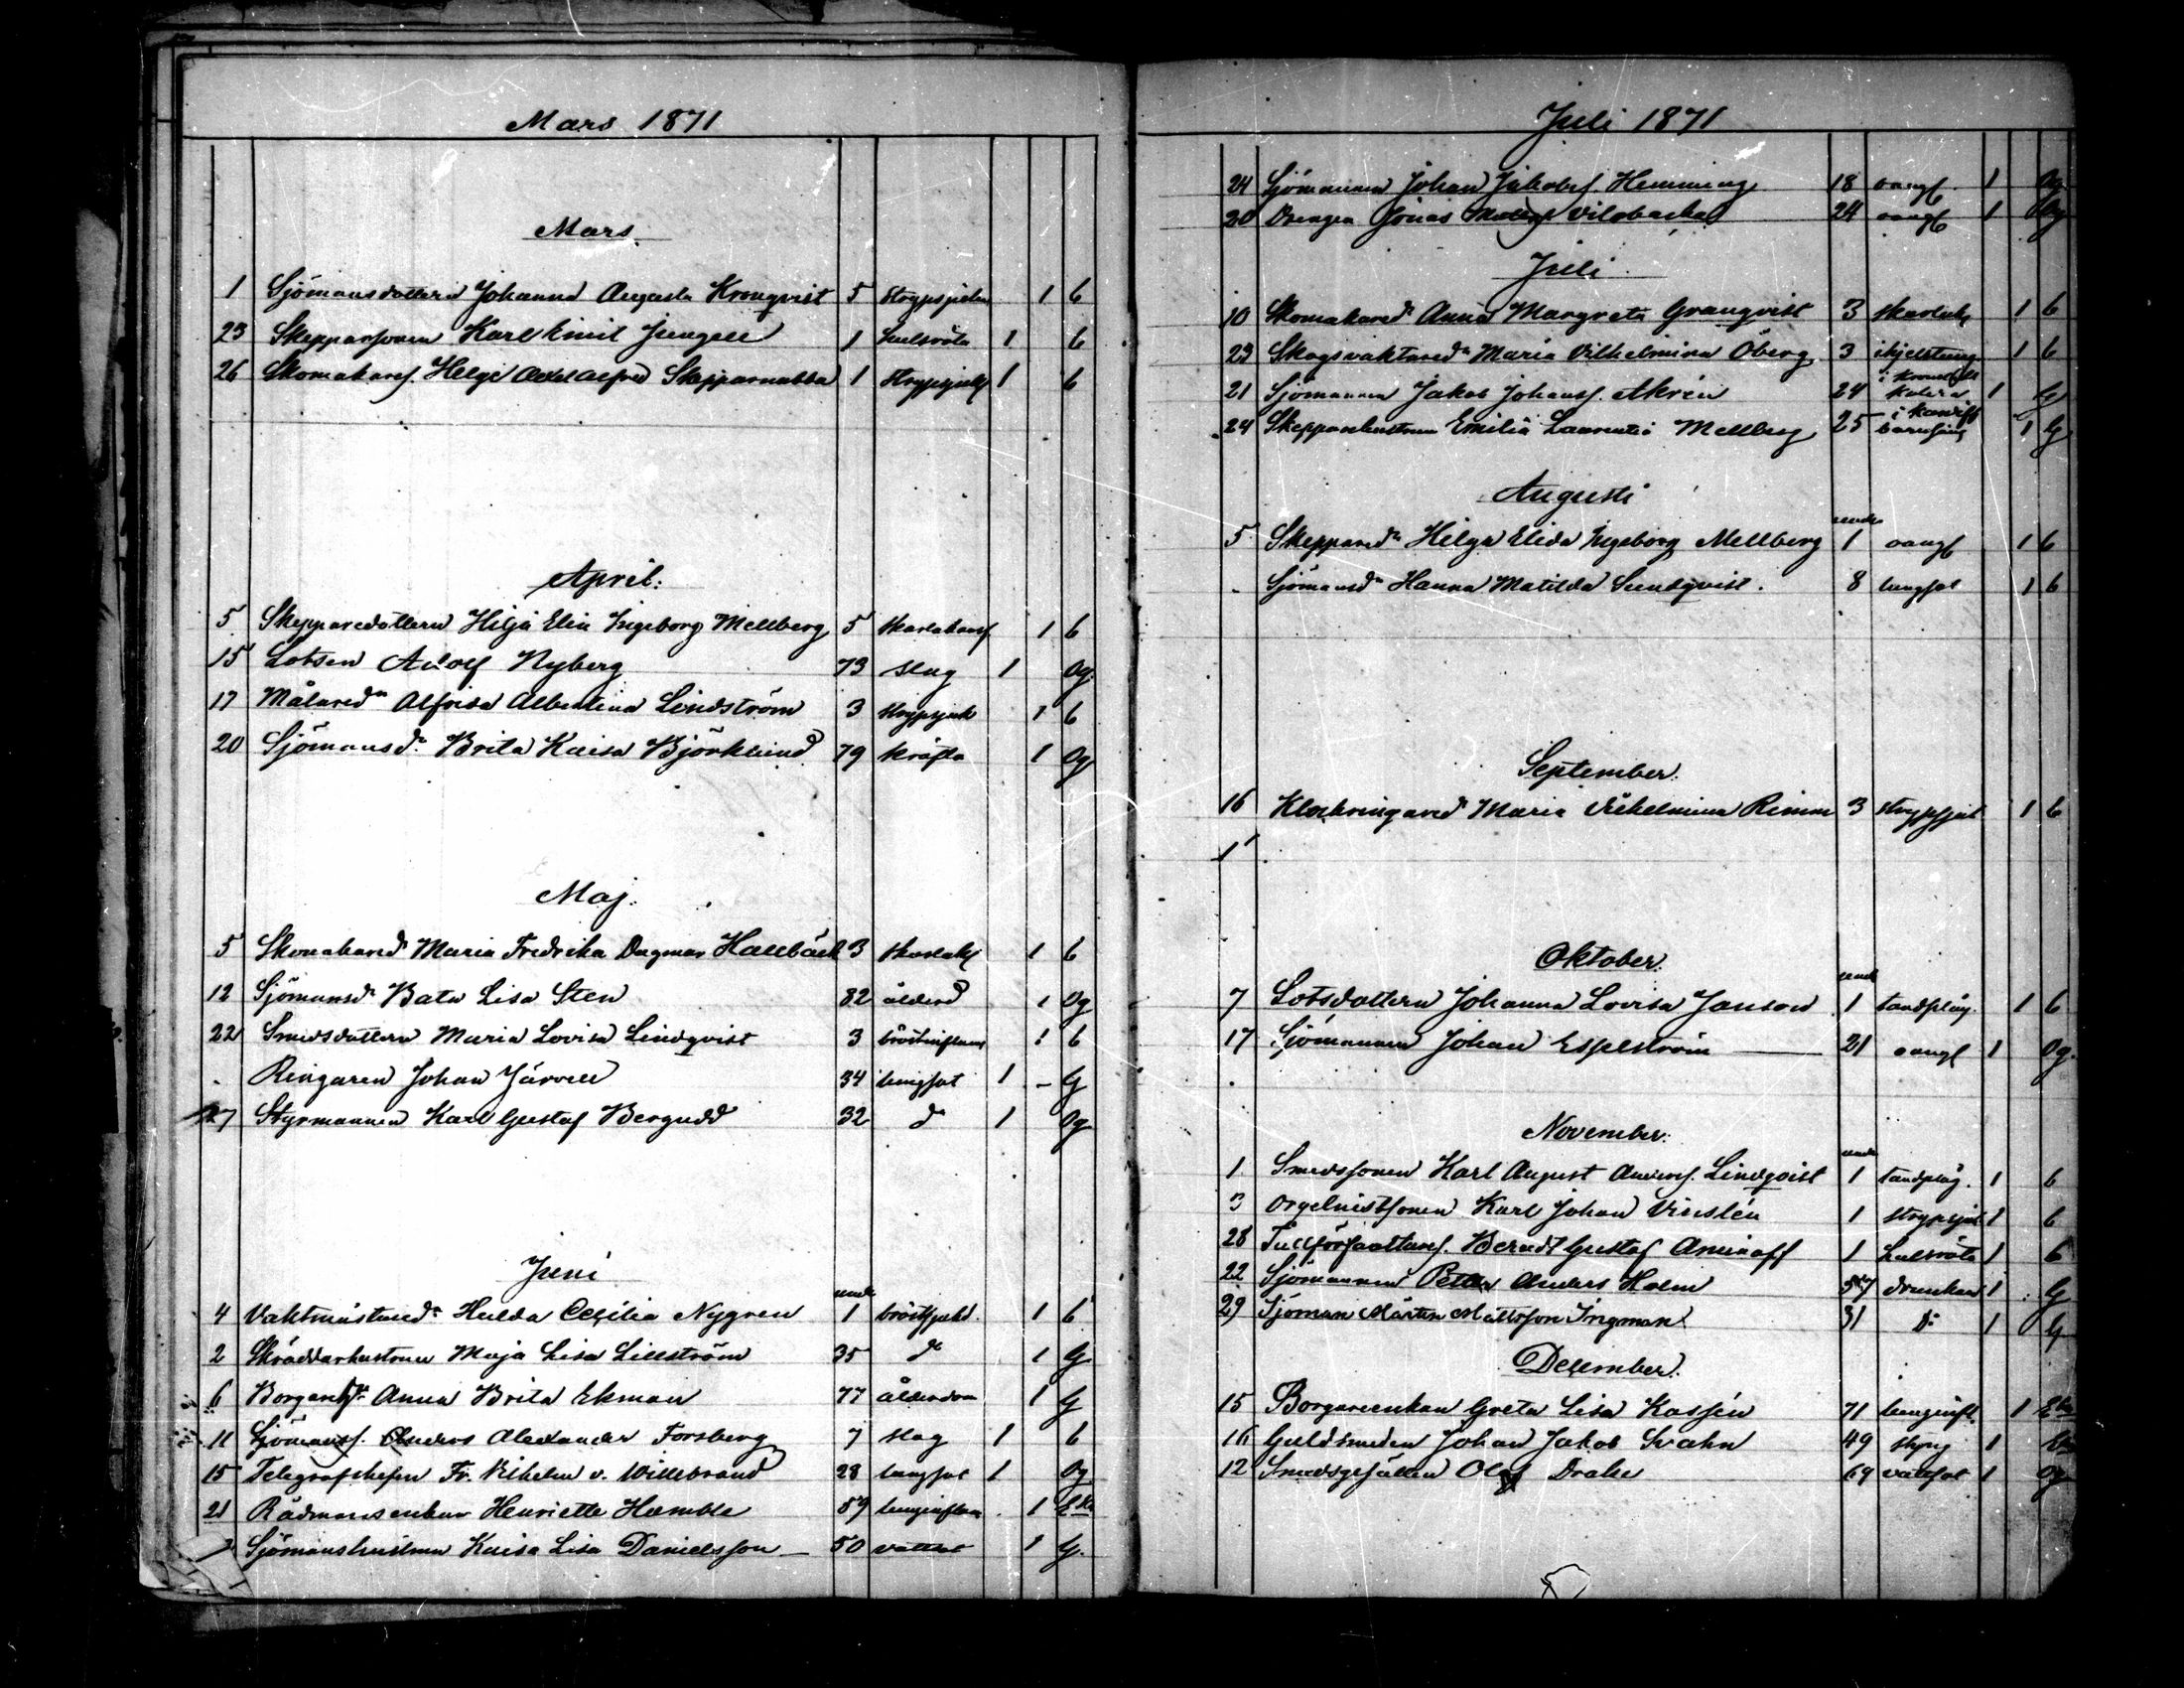 Mars 1871
Mars
1 Sjömansdottern Johanna Augusta Kronqvist 5 strypsjukn 1 b
23 Skepparsonen Karl Emil Jungell 1 halsröta 1 b
26 Skomakares. Helge Axel Alfred Skepparnabba 1 strypsjuk 1 b
April.
5 Skepparedottern Hilja Elin Ingeborg Mellberg 5 skarlakansf 1 b
15 Lotsen Adolf Nyberg 73 slag 1 Og.
17 Målared:n Alfrida Albertina Lindström 3 strypsjuk 1 b
20 Sjömansd:r Brita Kaisa Björklund 79 kräfta 1 Og
Maj.
5 Skomakared:r Maria Fredrika Dagmar Hallbäck 3 skarlakf 1 b
12 Sjömansd:r Lisa Sten 82 ålderd 1 Og
22 Smedsdottern Maria Lovisa Lindqvist 3 bröstinflam 1 b
Ringaren Johan Järvell 34 lungsot 1 G
27 Styrmannen Karl Gustaf Bergudd 32 d:o 1 Og
Juni
4 Vaktmästared:r Hulda Cecilia Nygren 1 1 b
2 Skräddarhustrun Maja Lisa Lillström 35 d:o 1 G
6 Anna Brita Ekman 77 ålderdom 1 G
11 Sjömanss. Anders Alexander Forsberg 7 slag 1 b
15 Telegrafchefen Fr. Vilhelm v. Willebrand 28 lungsot 1 Og
21 Rådmansenkan Henriette Hæmble 59 lunginflam 1 Eka
Sjömanshustrun Kaisa Lisa Danielsson 50 vattsot 1 G.
Juli 1871
24 Sjömannen Johan Jakobss. Hemming 18 oangf. 1 Og.
20 Drengen Jonas Vilobacka 24 oangf 1 Og
Juli
10 Skomakared:r Anna Margreta Granqvist 3 skarlakf 1 b
23 Skogsvaktared:r Maria Vilhelmina Öberg 3 1 b
21 Sjömannen Jakob Johanss. Akrén 24 kolera 1 G
24 Skepparehustrun Emilia Laurentia Mellberg 25 barnsäng 1 G
Augusti
5 Skeppared:r Hilja Elida Ingeborg Mellberg 1 oangf 1 b
Sjömansd:r Hanna Matilda Sundqvist. 8 lungsot 1 b
September.
16 Klockringared:r Maria Vilhelmina Rimm 3 strypsjuk 1 b
1
Oktober.
7 Lotsdottern Johanna Lovisa Janson 1 tandplåg. 1 b
17 Sjömannen Johan Espelström 21 oangf 1 Og.
November.
1 Smedssonen Karl August Anderss. Lindqvist 1 tandplåg. 1 b
3 Orgelnistsonen Karl Johan Virslén 1 strypsjuk 1 b
28 Berndt Gustaf Aminoff 1 halsröta 1 b
22 Sjömannen Petter Anders Holm 57 drunknad 1 G
29 Sjöman Mårten Mattsson Ingman 31 D:o 1 G
December.
15 Borgareenkan Greta Lisa Kassén 71 lunginfl. 1 Eka
16 Guldsmeden Johan Jakob Svahn 49 styng 1
12 Smedsgesällen Olof Drake 69 vattsot 1 Og